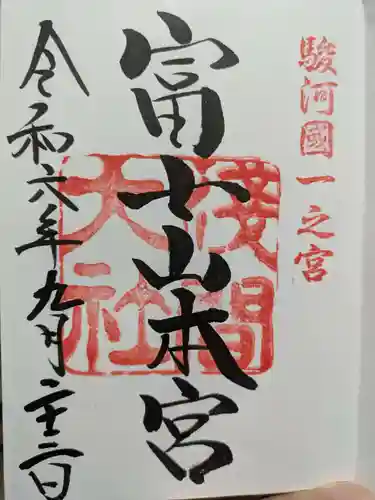 駿河國一之宮
富士山本宮
浅間大社
令和六年九月二十二日